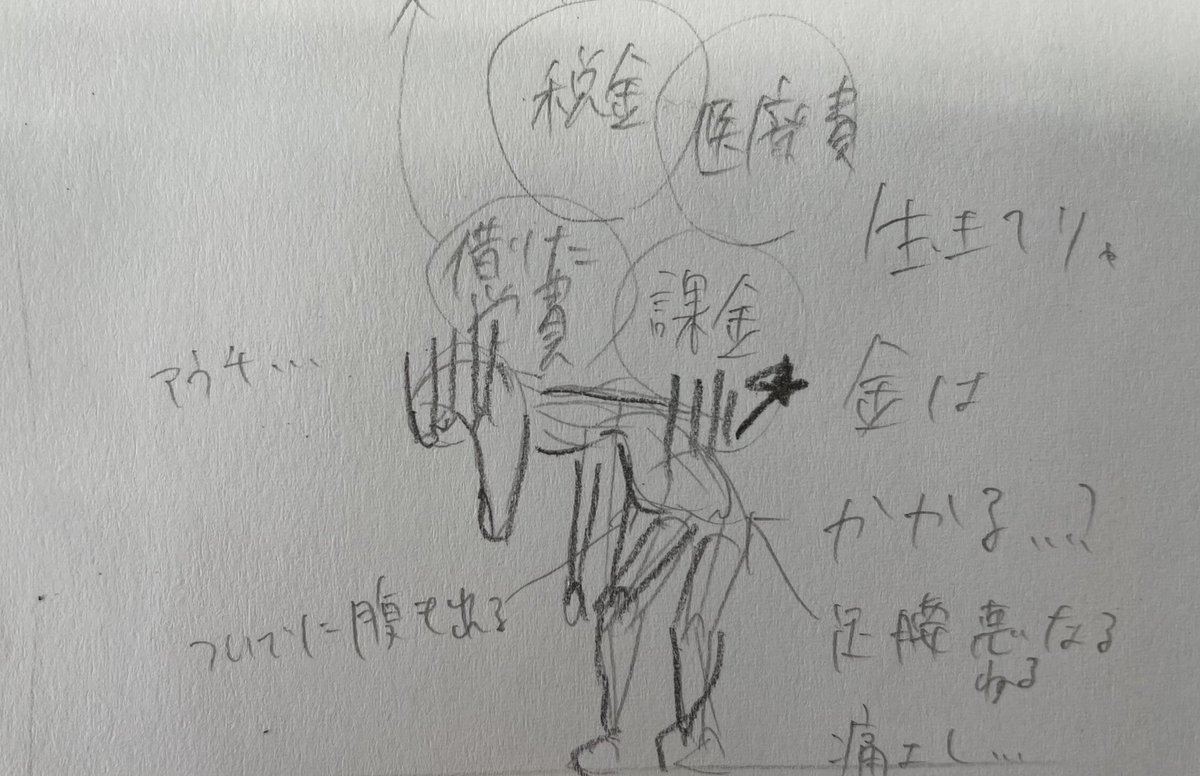 税金
医療費
借りた
学費
課金
生きてりゃ
金は
かかる…?
アウチ…
ついでに腹も出る
足腰悪なる
わる
痛エし…